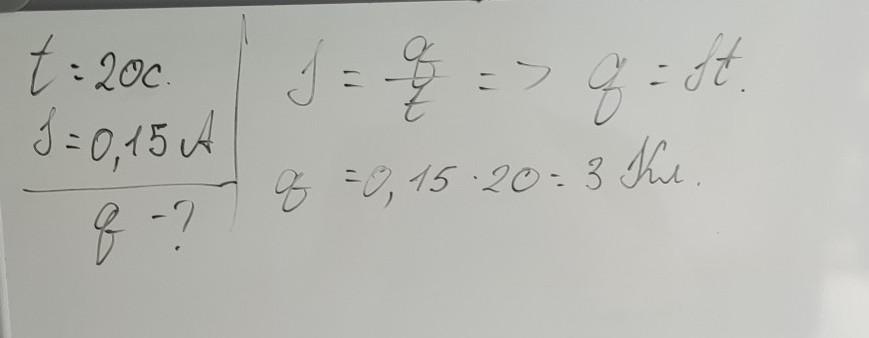 t = 20с.
I = 0,15 А
q - ?
I = q/t => q = It.
q = 0,15 · 20 = 3 Кл.